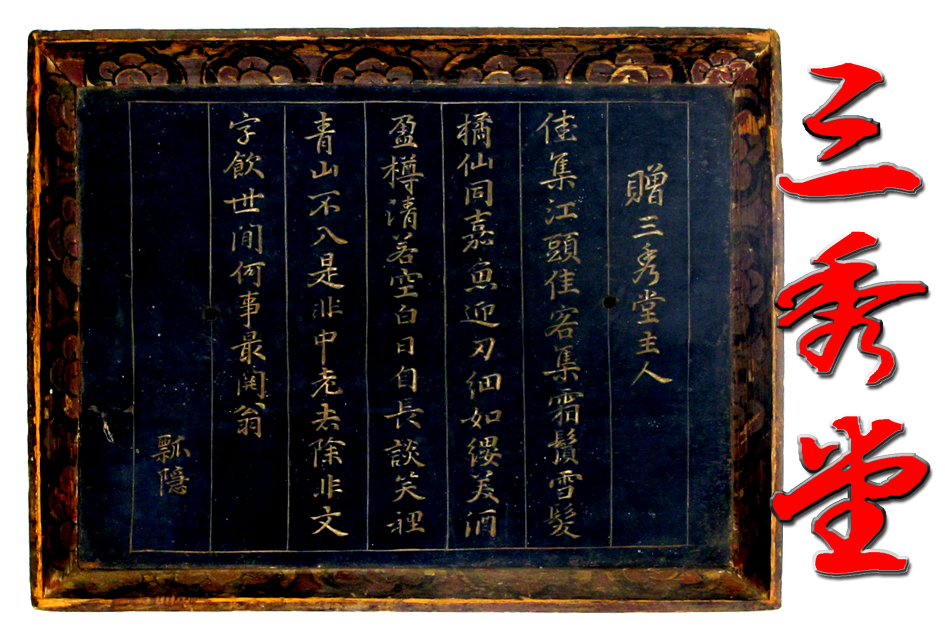 三秀堂
贈三秀堂主人
佳集江頭佳客集霜鬢雪髮
橘仙同嘉魚迎刃細如縷美酒
盈樽清若空白日自長談笑裡
青山不入是非中老去除非文
字飲世间何事最関翁
瓢隱